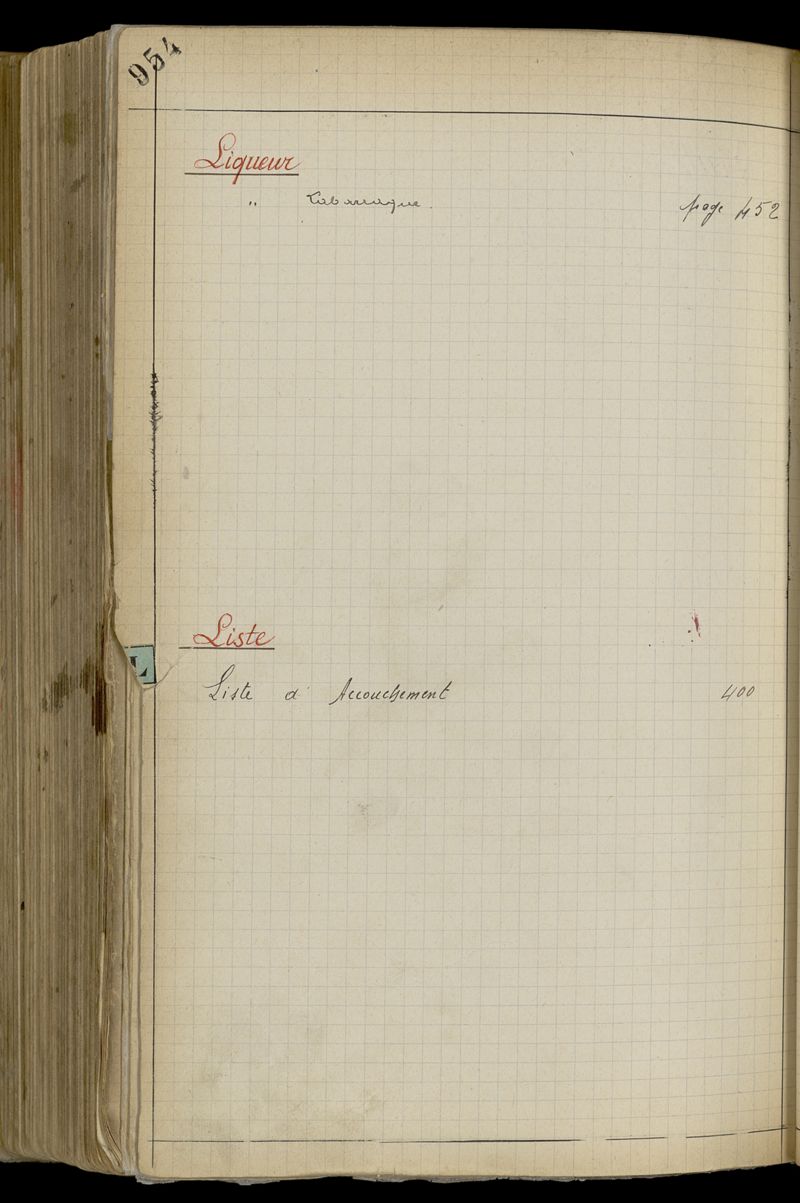 954
Liqueur
" Labarraque. page 452
Liste
L
Liste d'Accouchement 400